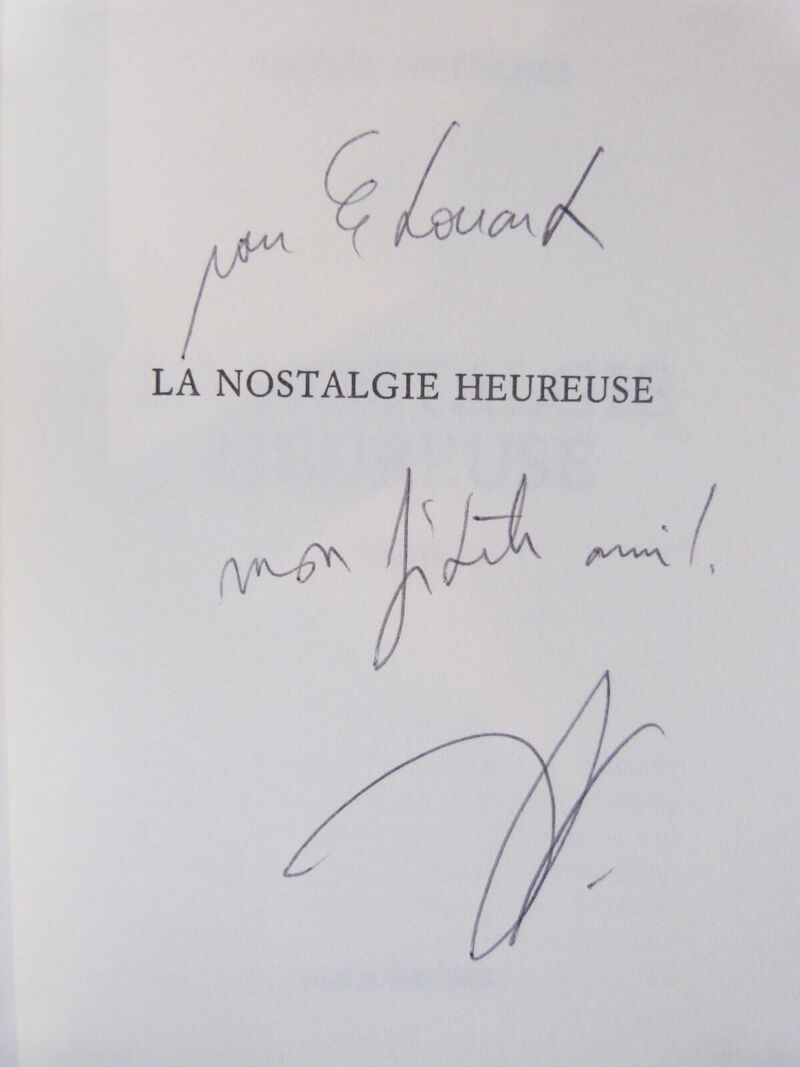 pour Edouard
LA NOSTALGIE HEUREUSE
mon fidèle ami !